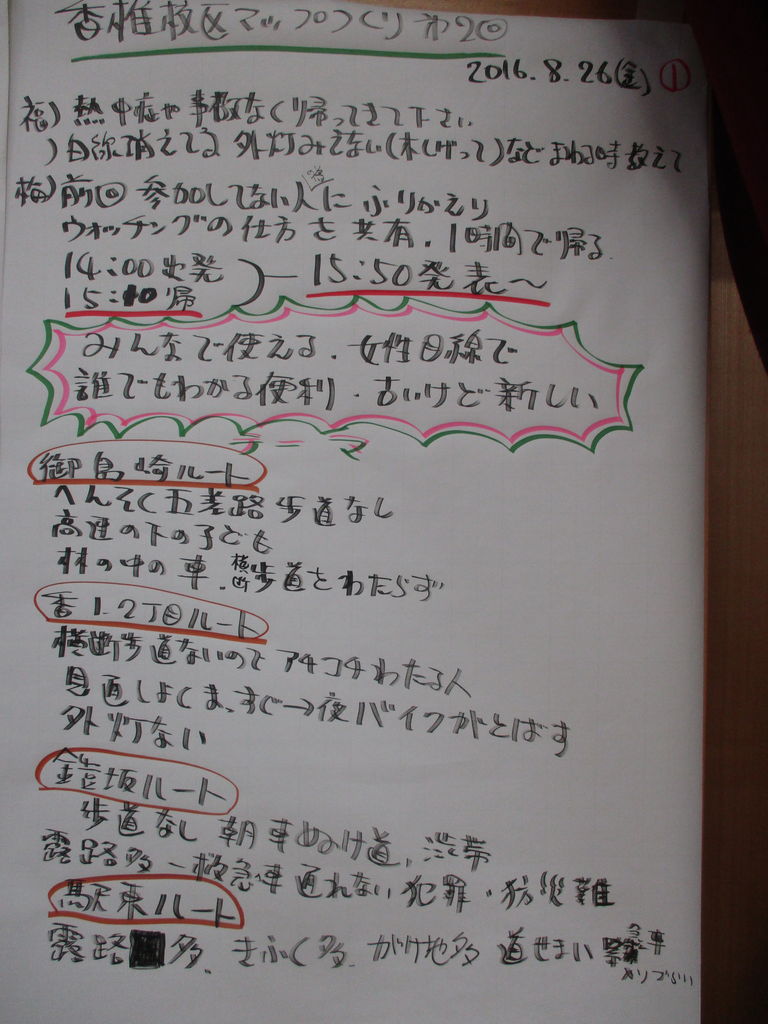 香椎校区マップつくり 第2回
2016.8.26(金) ①
福) 熱中症や事故なく帰ってきて下さい
) 白線消えてる 外灯みえない(木しげって)などまわる時教えて
梅) 前回 参加してない人に ふりかえり
ウォッチングの仕方を共有．1時間で帰る
14:00出発
15:50発表〜
15:10帰
みんなで使える．女性目線で
誰でもわかる便利・古いけど新しい
テーマ
御島崎ルート
へんそく五差路 歩道なし
高速の下の子ども
林の中の車．横断歩道をわたらず
香1.2丁目ルート
横断歩道ないので アチコチわたる人
見通しよくまっすぐ→夜バイクがとばす
外灯ない
鎧坂ルート
歩道なし 朝車ぬけ道．渋帯
露路多－救急車通れない 犯罪・防災難
駅東ルート
露路 多．きふく多．がけ地多 道せまい